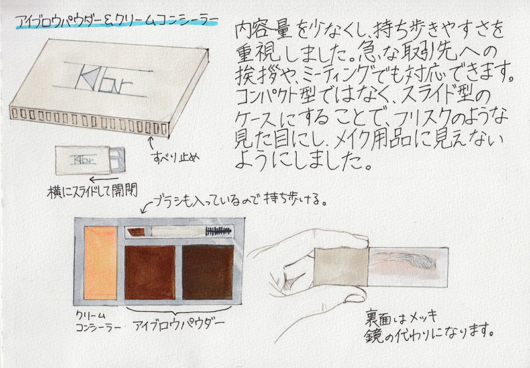 アイブロウパウダー&クリームコンシーラー
内容量を少なくし、持ち歩きやすさを
重視しました。急な取引先への
挨拶や、ミーティングでも対応できます。
コンパクト型ではなく、スライド型の
ケースにすることで、フリスクのような
見た目にし、メイク用品に見えない
ようにしました。
Klar
すべり止め
Klar
横にスライドして開閉
ブラシも入っているので持ち歩ける。
クリーム
コンシーラー
アイブロウパウダー
裏面はメッキ
鏡の代わりになります。